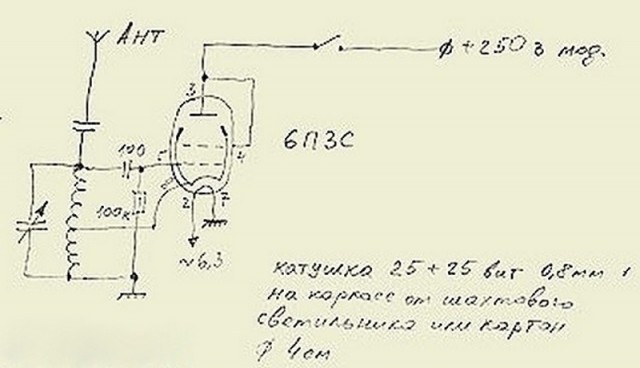 АНТ
ф +250 в мод.
3
6П3С
100
5
4
100к
8
2
7
~6,3
катушка 25 + 25 вит 0,8мм
на каркасе от шахтового
светильника или картон
ф 4см